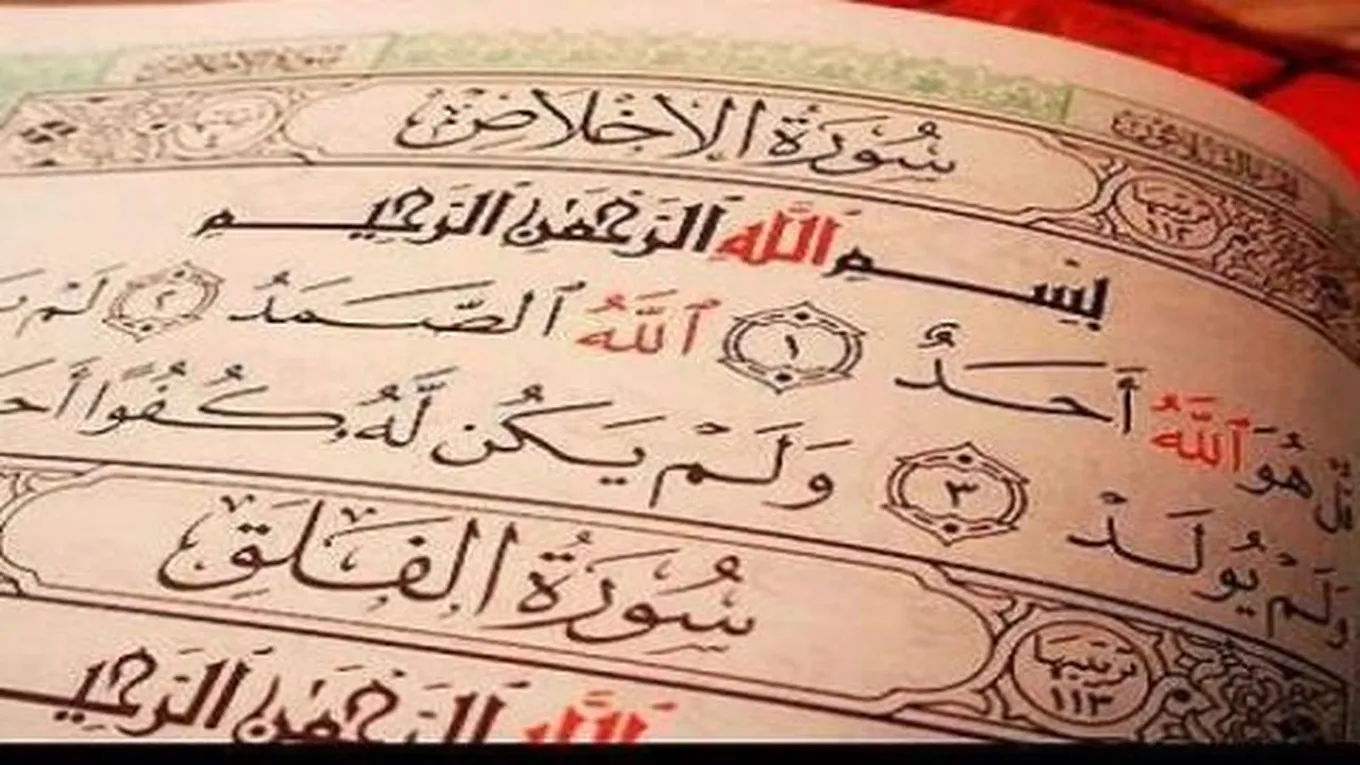 سُورَةُ الإِخْلَاصِ
ترتيبها ١١٢
بِسْمِ اللَّهِ الرَّحْمَٰنِ الرَّحِيمِ
هُوَ ٱللَّهُ أَحَدٌ ١ ٱللَّهُ ٱلصَّمَدُ ٢ لَمْ
وَلَمْ يُولَدْ ٣ وَلَمْ يَكُن لَّهُۥ كُفُوًا
سُورَةُ الفَلَقِ
ترتيبها ١١٣
اللَّهِ الرَّحْمَٰنِ الرَّحِيمِ